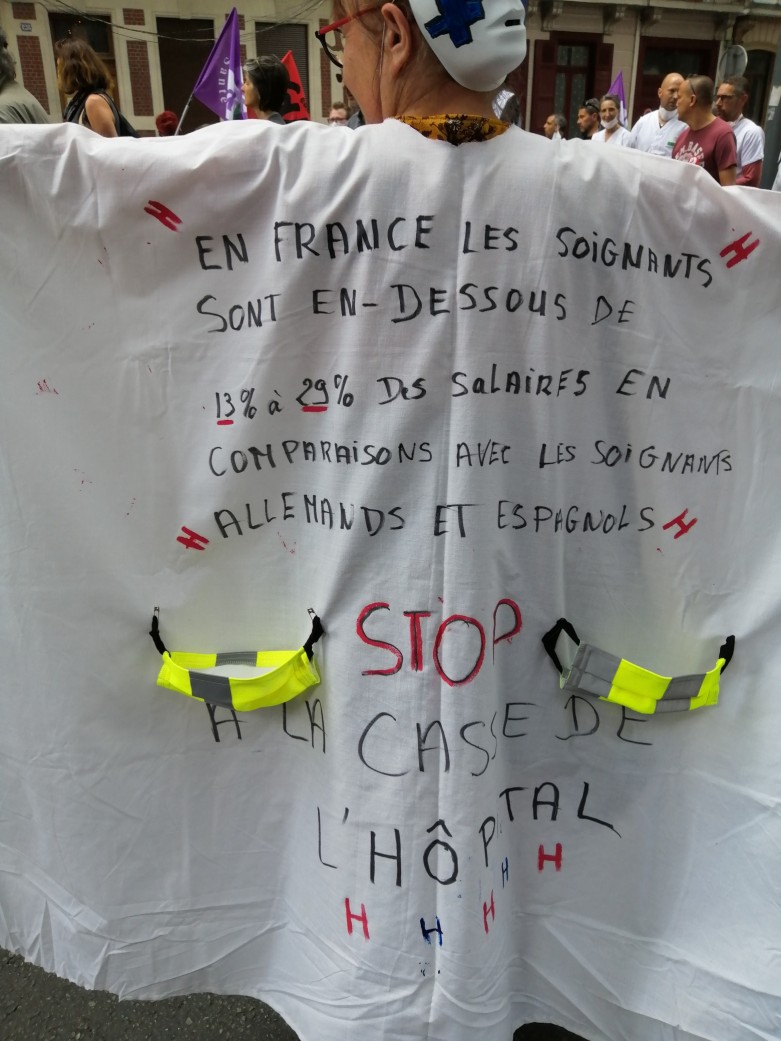 santé
H EN FRANCE LES SOIGNANTS H
SONT EN-DESSOUS DE
13% à 29% Des SALAIRES EN
COMPARAISONS AVEC LES SOIGNANTS
H ALLEMANDS ET ESPAGNOLS H
STOP
A LA CASSE DE
L'HÔPITAL
H H H H H